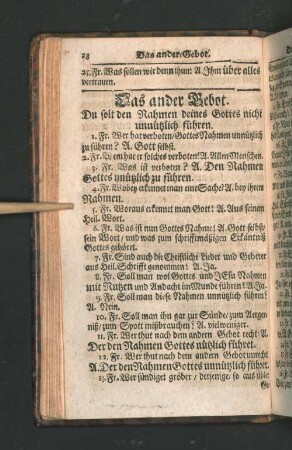 28 Das ander Gebot.
25. Fr. Was sollen wir denn thun? A. Ihm über alles
vertrauen.
Das ander Gebot.
Du solt den Nahmen deines Gottes nicht
unnützlich führen.
1. Fr. Wer hat verboten Gottes Nahmen unnützlich
zu führen? A. Gott selbst.
2. Fr. Wem hat er solches verboten? A. Allen Menschen.
3. Fr. Was ist verboten? A. Den Nahmen
Gottes unnützlich zu führen.
4. Fr. Wobey erkennet man eine Sache? A. bey ihrem
Nahmen.
5. Fr. Woraus erkennet man Gott? A. Aus seinem
Heil. Wort.
6. Fr. Was ist nun Gottes Nahme? A. Gott selbst/
sein Wort/ und was zum schrifftmäßigen Erkäntniß
Gottes gehöret.
7. Fr. Sind auch die Christliche Lieder und Gebeter
aus Heil. Schrifft genommen? A. Ja.
8. Fr. Soll man wol Gottes und JEsu Nahmen
mit Nutzen und Andacht im Munde führen? A. Ja.
9. Fr. Soll man diese Nahmen unnützlich führen?
A. Nein.
10. Fr. Soll man ihn gar zur Sünde/ zum Aerger-
niß/ zum Spott mißbrauchen? A. vielweniger.
11. Fr. Wer thut nach dem andern Gebot recht? A.
Der den Nahmen Gottes nützlich führet.
12. Fr. Wer thut nach dem andern Gebot unrecht
A. Der den Nahmen Gottes unnützlich führet.
13. Fr. Wer sündiget gröber/ derjenige/ so aus übler